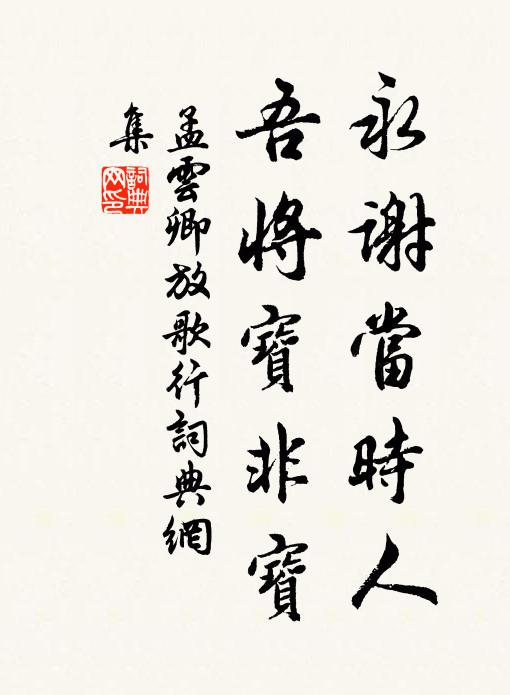 永謝當時人
吾將寶非寶
孟雲卿放歌行詞典網
集
詞典網印